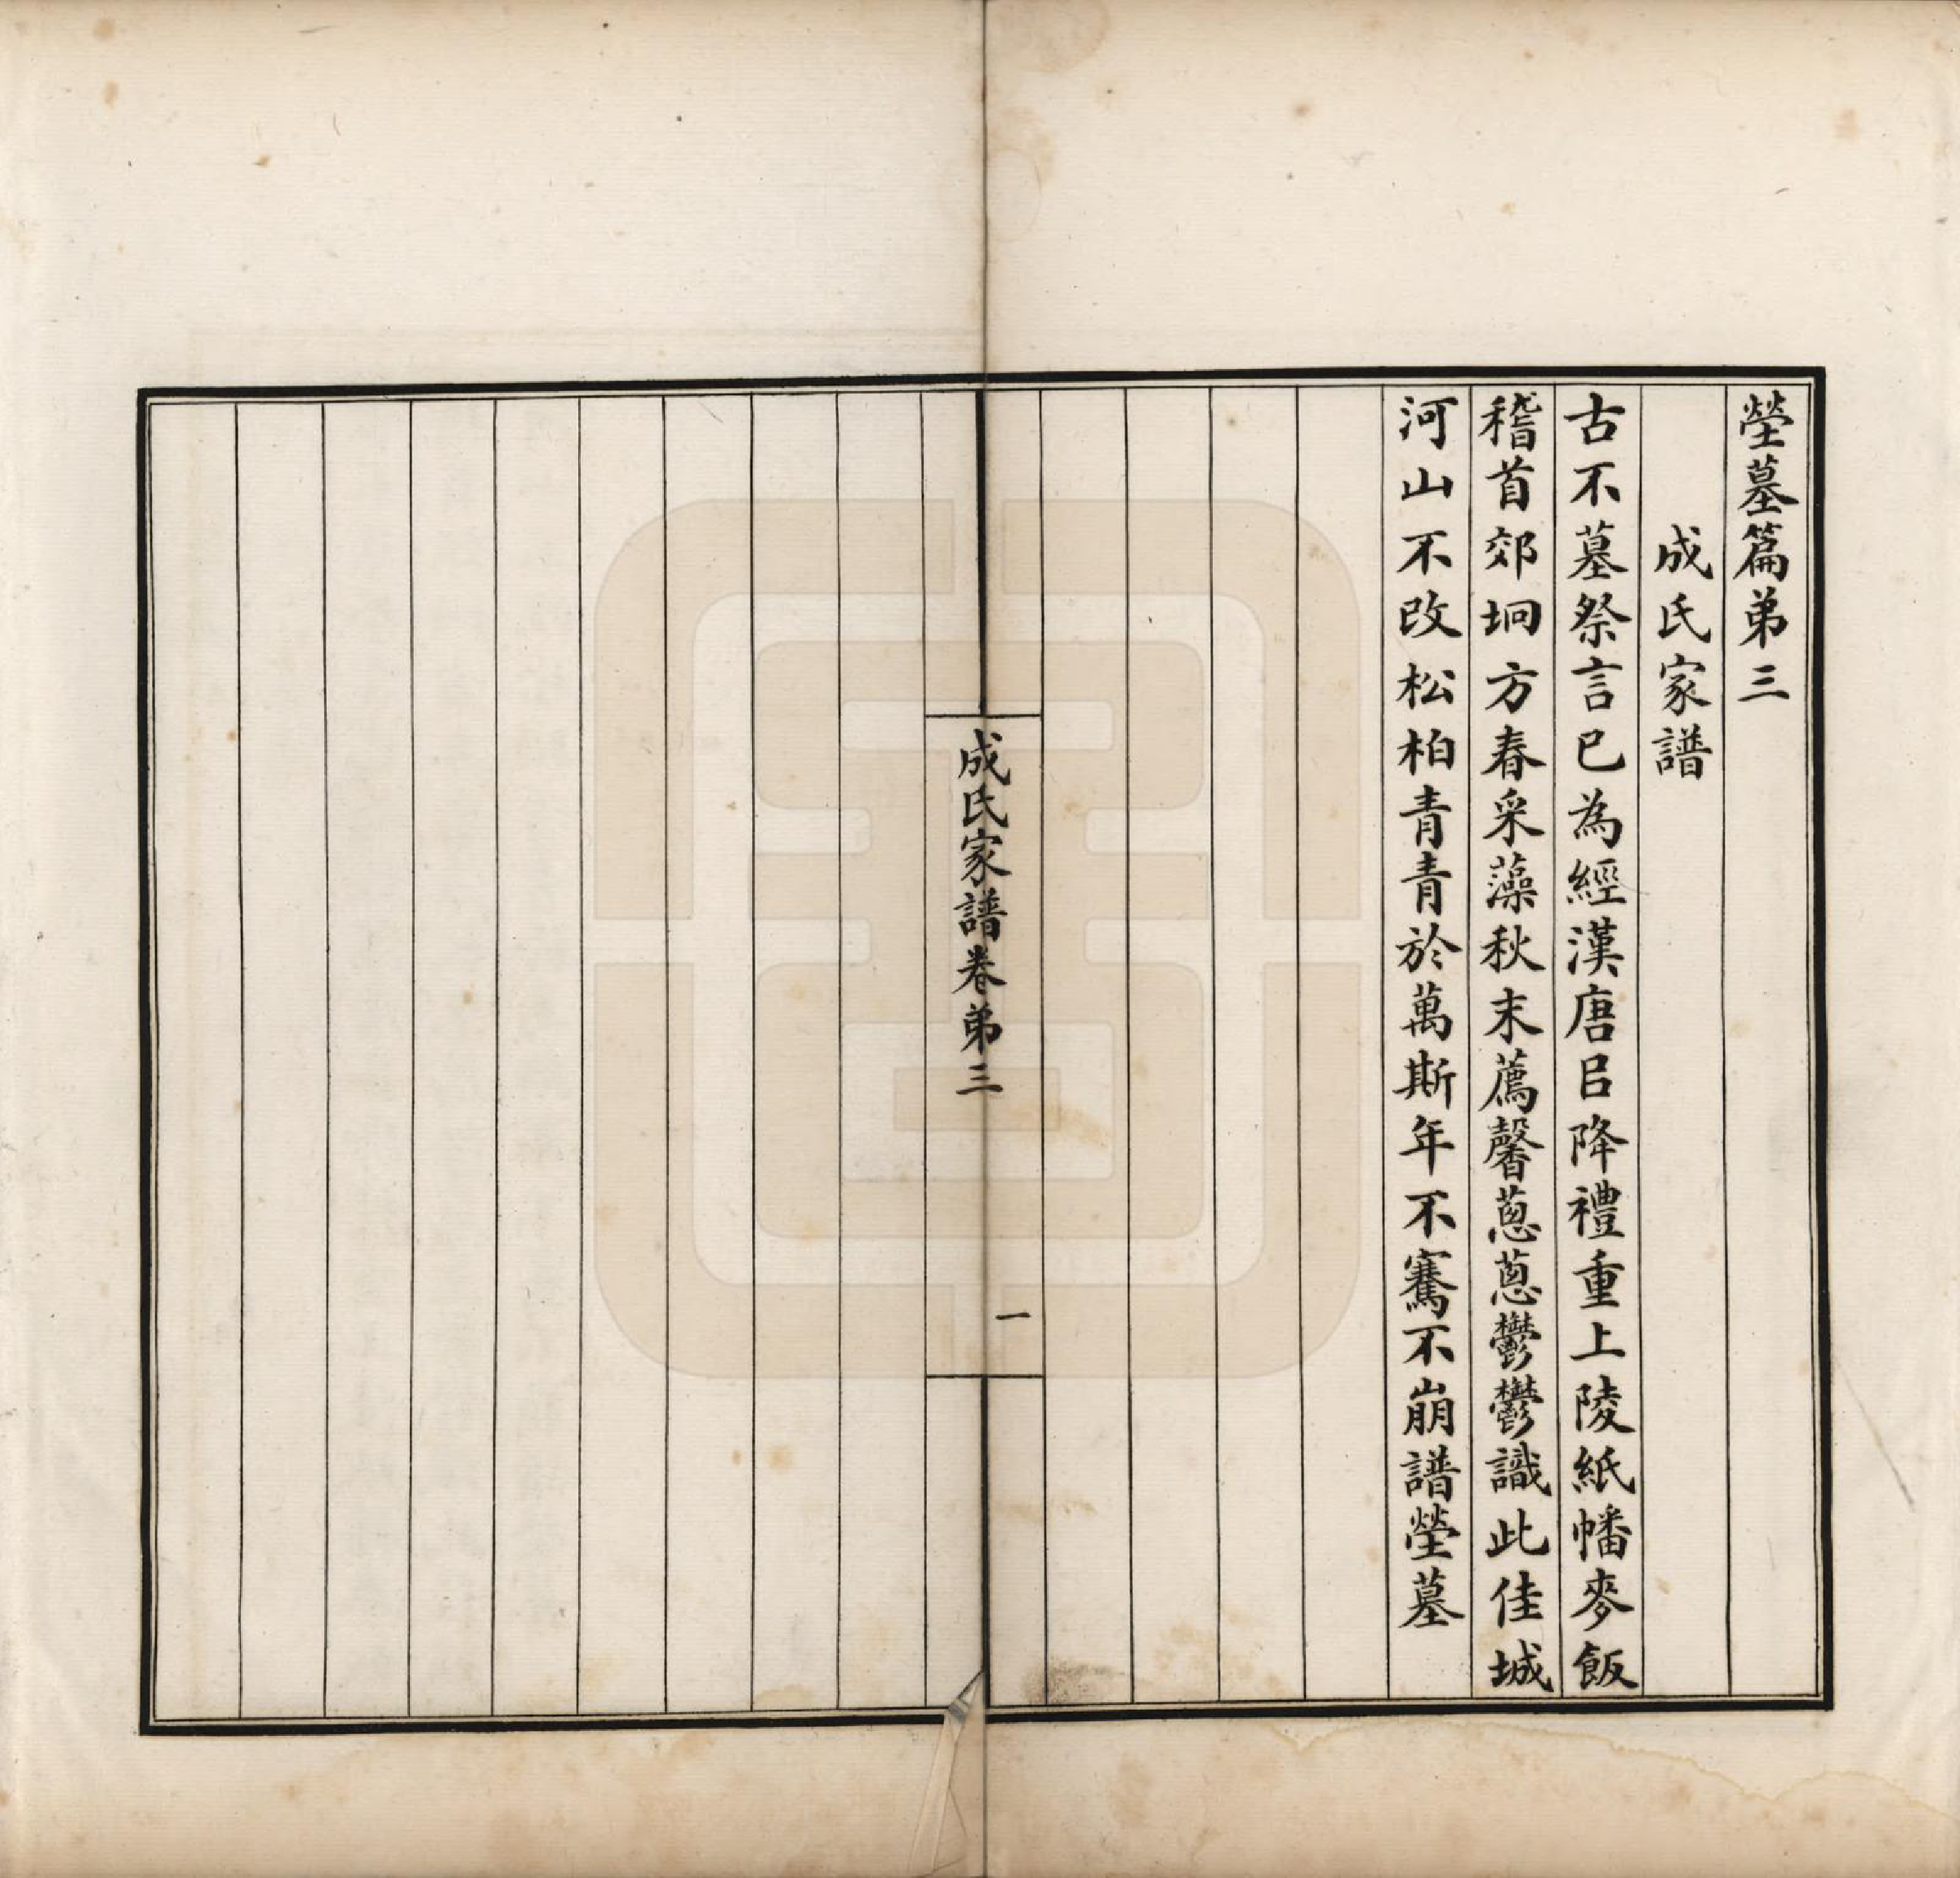 塋墓篇弟三
成氏家譜
古不墓祭言已為經漢唐㠯降禮重上陵紙幡麥飯
稽首郊坰方春采藻秋末薦馨蔥蔥鬱鬱識此佳城
河山不改松柏青青於萬斯年不騫不崩譜塋墓
成氏家譜卷弟三
一